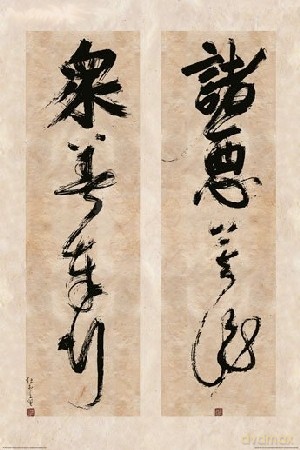 諸悪莫作
衆善奉行
dvdmax